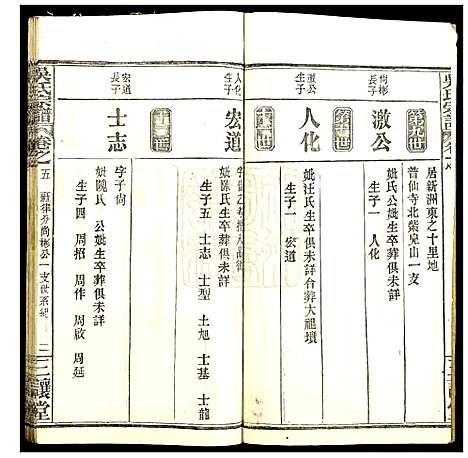 吳氏宗譜
居新洲東之十里地
普仙寺北紫皇山一支
第九世
尚彬長子
激公
妣氏公妣生卒葬俱未詳
生子一 人化
第十世
激公生子
人化
妣汪氏生卒葬俱未詳合葬大祖墳
生子一 宏道
人化生子
宏道
妣陳氏生卒葬俱未詳
生子五 士志 士型 士旭 士基 士龍
宏道長子
士志
字子尚
妣隗氏 公妣生卒葬俱未詳
生子四 周招 周作 周啟 周延
吳氏宗譜
卷之五
尚彬公一支世系紀
三讓堂